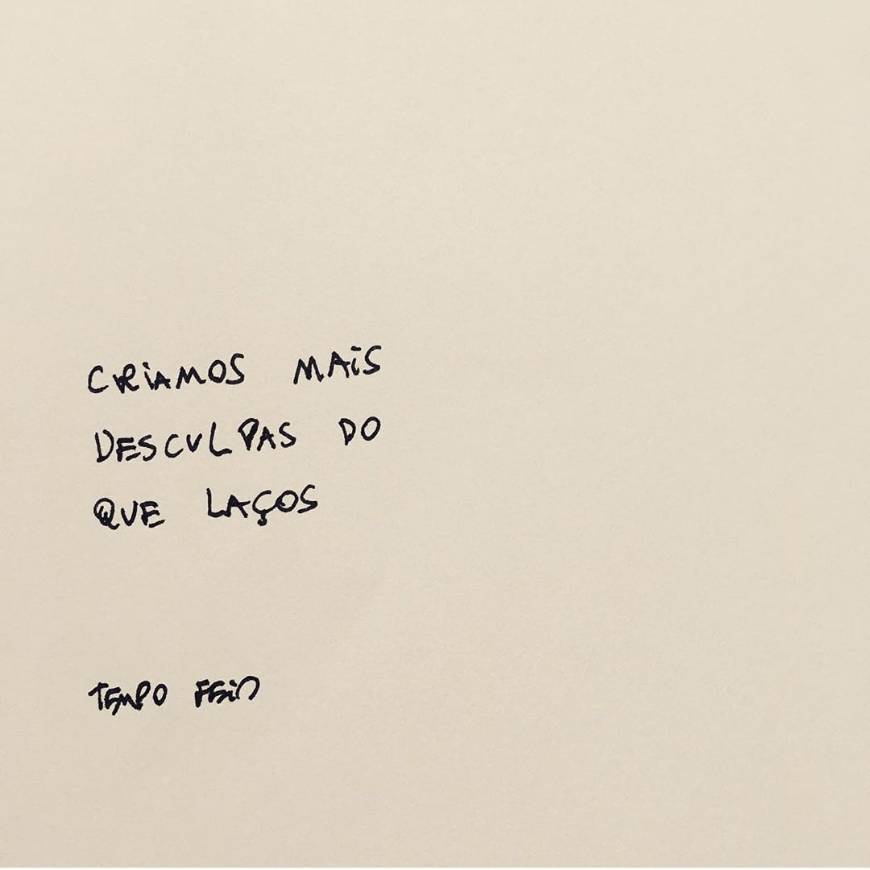 CRIAMOS MAIS
DESCULPAS DO
QUE LAÇOS
TEMPO FEIO